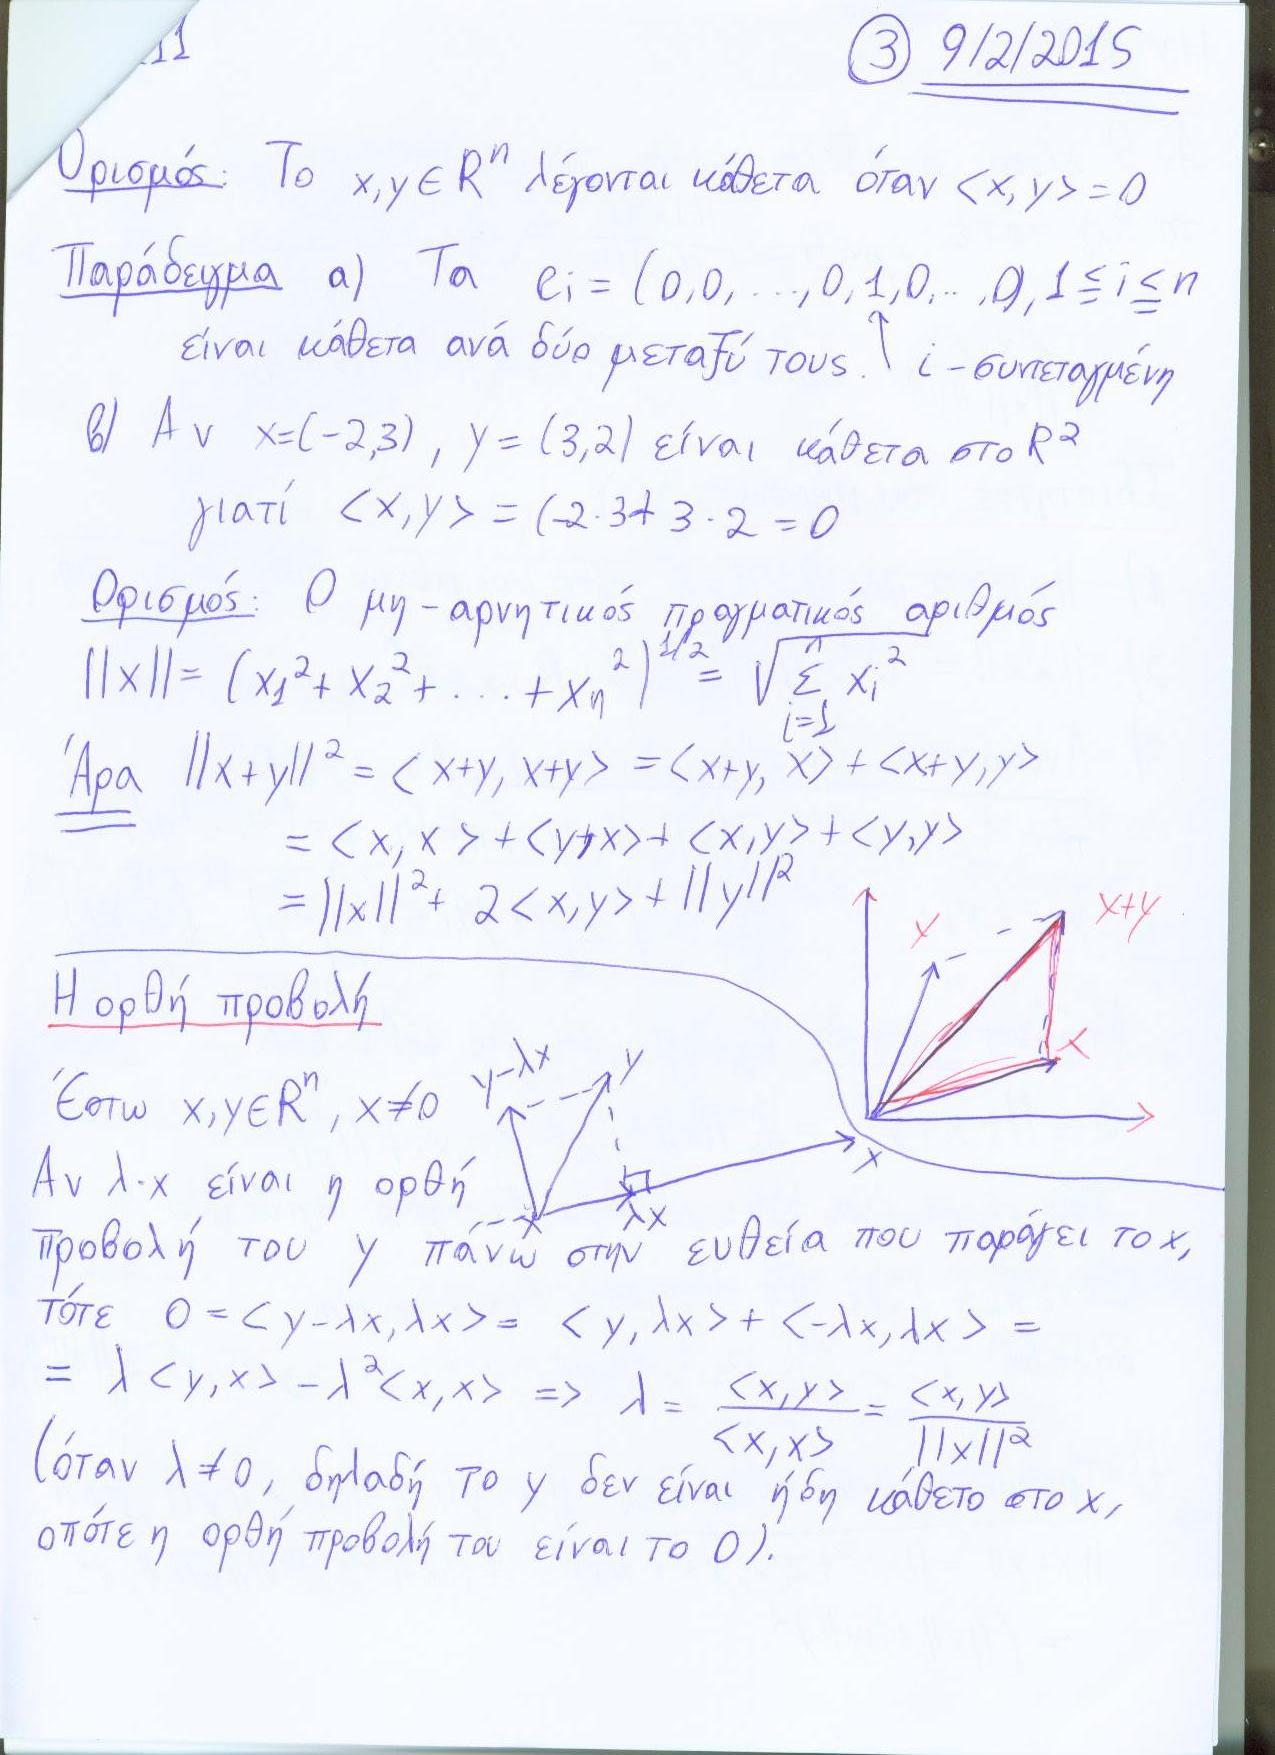 11
③ 9/2/2015
Ορισμός: Το x,y∈Rⁿ λέγονται κάθετα όταν <x,y>=0
Παράδειγμα α) Τα eᵢ = (0,0,...,0,1,0,..,0), 1≤i≤n
είναι κάθετα ανά δύο μεταξύ τους. ↑ i-συντεταγμένη
β) Αν x=(-2,3), y=(3,2) είναι κάθετα στο R²
γιατί <x,y> = (-2·3+3·2=0
Ορισμός: Ο μη-αρνητικός πραγματικός αριθμός
||x||= (x₁²+x₂²+...+xₙ²)^1/2 = √Σ_{i=1}^{n} xᵢ²
Άρα ||x+y||²=<x+y, x+y> =<x+y, x>+<x+y,y>
= <x,x>+<y,x>+<x,y>+<y,y>
= ||x||²+ 2<x,y>+||y||²
x x+y
x
Η ορθή προβολή
y-λx y
Έστω x,y∈Rⁿ, x≠0
x
Αν λ·x είναι η ορθή
λx
προβολή του y πάνω στην ευθεία που παράγει το x,
τότε 0=<y-λx,λx>= <y,λx>+<-λx,λx> =
= λ<y,x>-λ²<x,x> => λ = <x,y>/<x,x> = <x,y>/||x||²
(όταν λ≠0, δηλαδή το y δεν είναι ήδη κάθετο στο x,
οπότε η ορθή προβολή του είναι το 0).